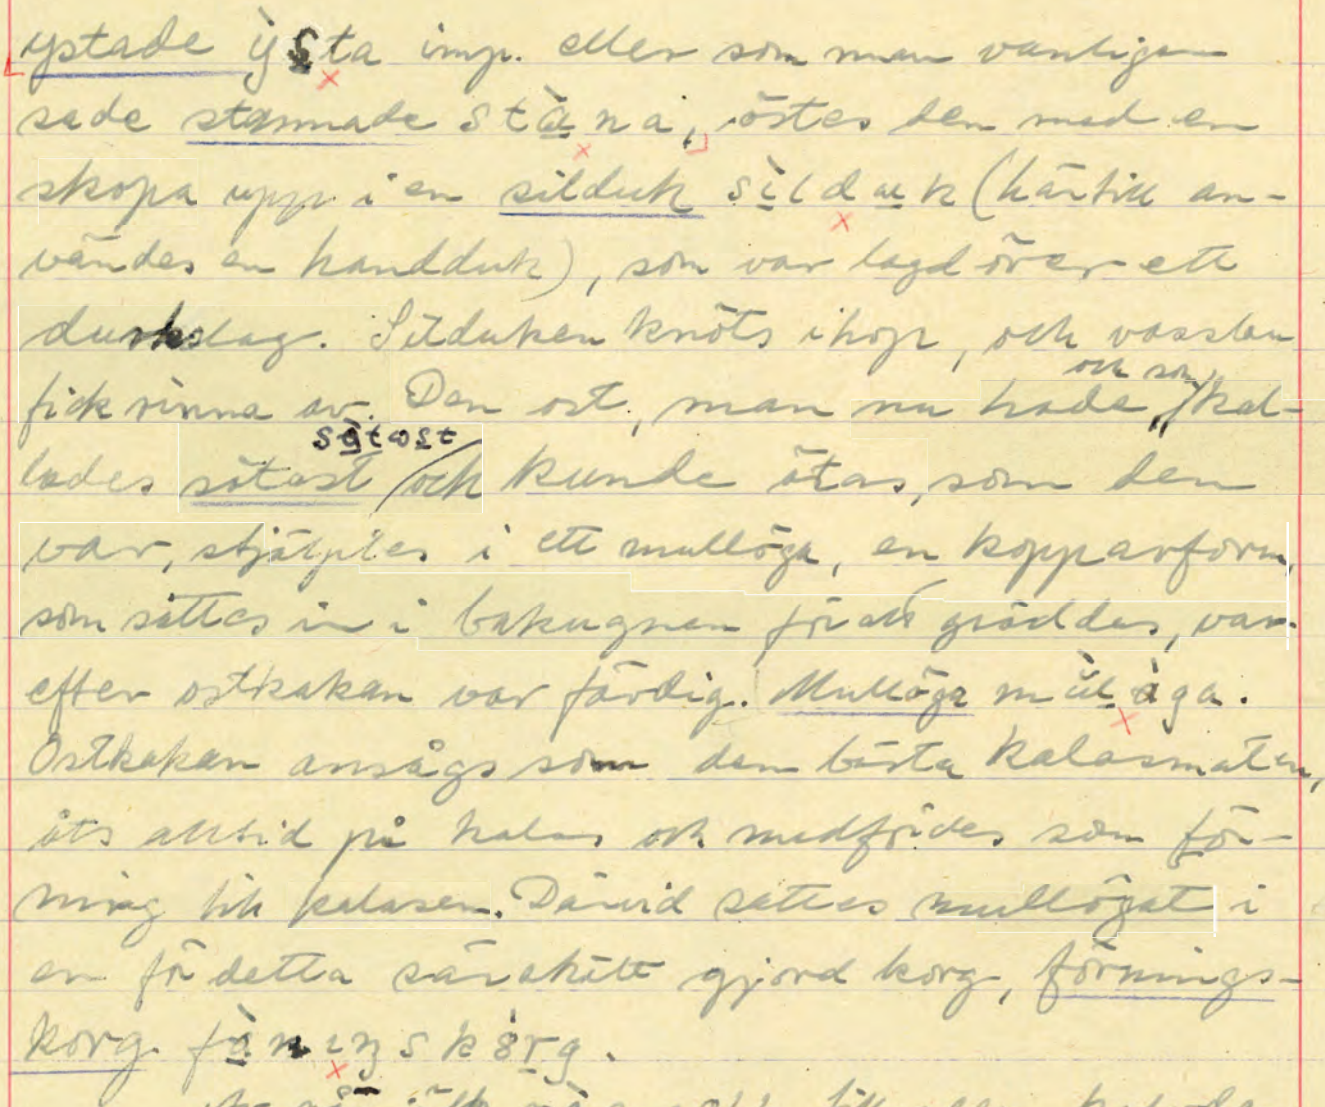 ystade ỳsta imp. eller som man vanligen
sade stannade stàna, östes den med en
skopa upp i en silduk sìlduk (härtill an-
vändes en handduk), som var lagd över ett
durkslag. Silduken knöts ihop, och vasslen
fick rinna av. Den ost, man nu hade, och som kal-
lades sötost sø̀tost och kunde ätas, som den
var, stjälptes i ett mullöga, en kopparform,
som sattes in i bakugnen för att gräddas, var-
efter ostkakan var färdig. Mullöga mùlàga.
Ostkakan ansågs som den bästa kalasmaten,
åts alltid på kalas och medfördes som för-
ning till kalasen. Därvid sattes mullögat i
en för detta särskilt gjord korg, förnings-
korg